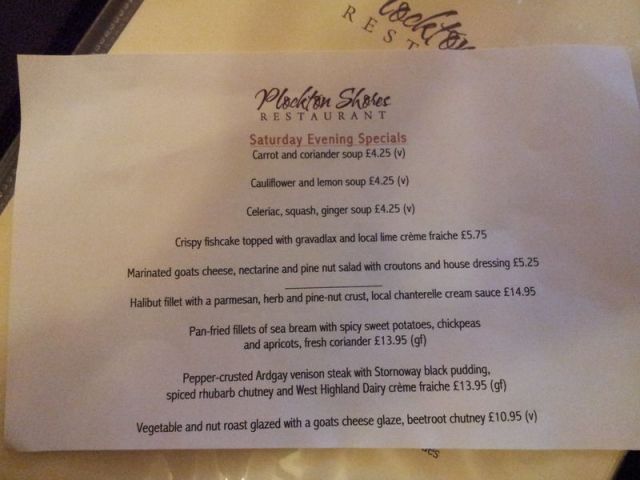 ockton
REST
Plockton Shores
RESTAURANT
Saturday Evening Specials
Carrot and coriander soup £4.25 (v)
Cauliflower and lemon soup £4.25 (v)
Celeriac, squash, ginger soup £4.25 (v)
Crispy fishcake topped with gravadlax and local lime crème fraiche £5.75
Marinated goats cheese, nectarine and pine nut salad with croutons and house dressing £5.25
Halibut fillet with a parmesan, herb and pine-nut crust, local chanterelle cream sauce £14.95
Pan-fried fillets of sea bream with spicy sweet potatoes, chickpeas
and apricots, fresh coriander £13.95 (gf)
Pepper-crusted Ardgay venison steak with Stornoway black pudding,
spiced rhubarb chutney and West Highland Dairy crème fraiche £13.95 (gf)
Vegetable and nut roast glazed with a goats cheese glaze, beetroot chutney £10.95 (v)